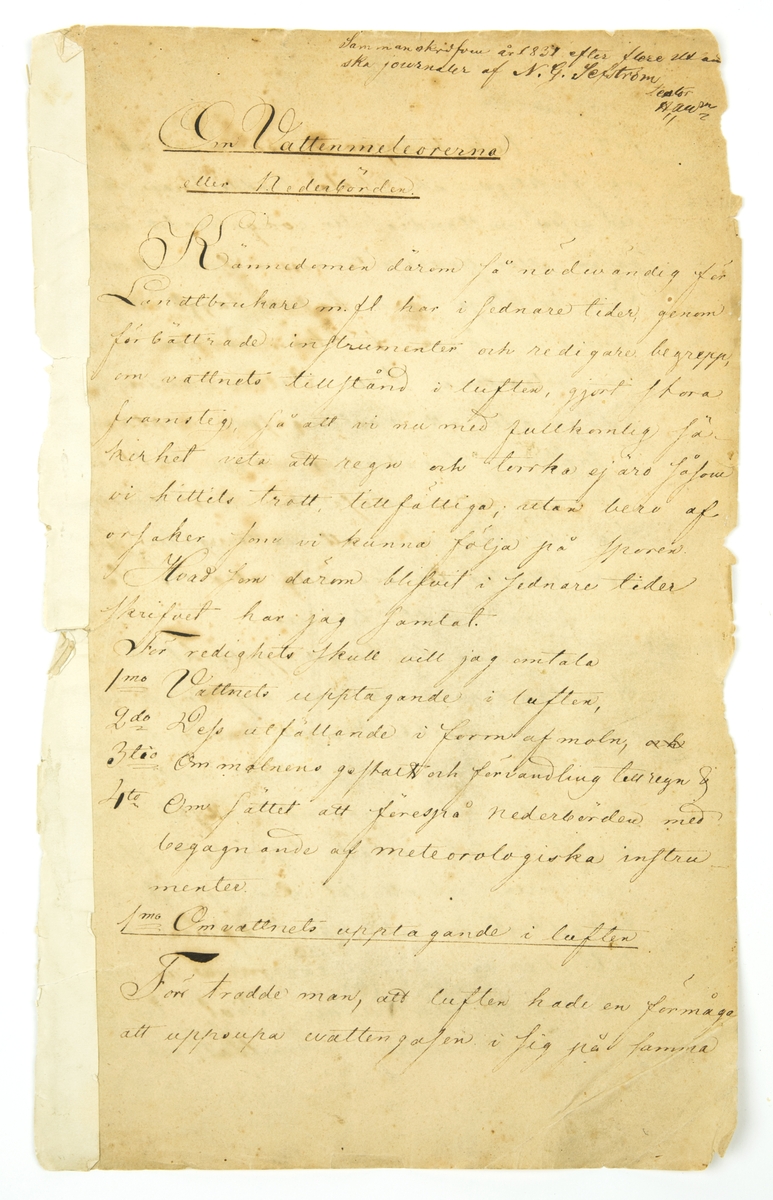 Sammanskrifven år 1831 efter flere
ska journaler af N. G. Sefström
Lector
Om Vattenmeteorerna
eller Nederbörden.
Kännedomen därom så nödwändig för
Landtbrukare m.fl har i sednare tider, genom
förbättrade instrumenter och redigare begrepp,
om vattnets tillstånd i luften, gjort stora
framsteg, så att vi nu med fullkomlig sä-
kerhet veta att regn och torrka ej äro såsom
vi hittils trott, tillfälliga; utan bero af
orsaker som vi kunna följa på spåren
Hvad som därom blifvit i sednare tider
skrifvet har jag samlat.
För redighets skull vill jag omtala
1mo Vattnets upptagande i luften,
2do Dess utfällande i form af moln, och
3tio Om molnens gestalt och förvandling till regn &
4to Om sättet att förespå nederbörden med
begagnande af meteorologiska instru-
menter.
1mo Om vattnets upptagande i luften
Förr trodde man, att luften hade en förmåga
att uppsupa vattengasen i sig på samma